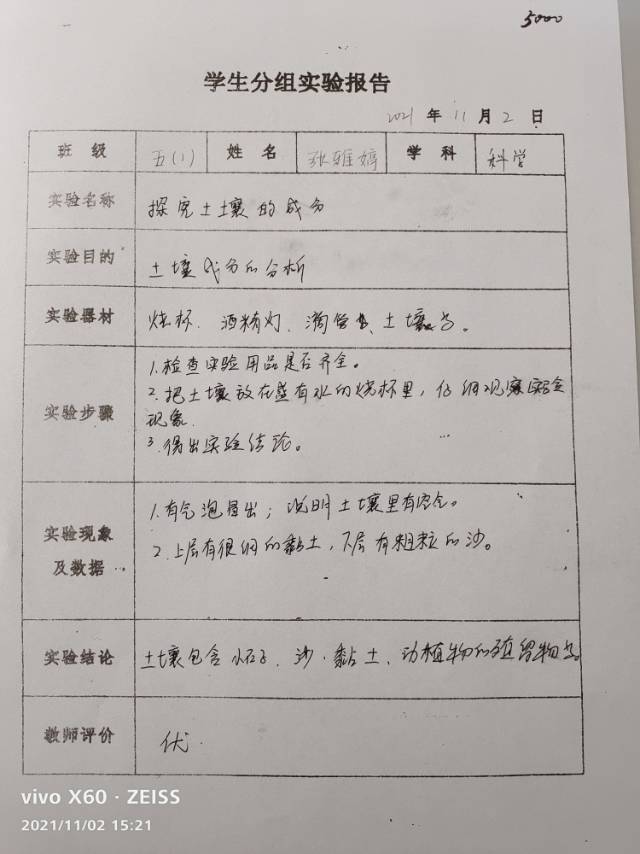 5000
学生分组实验报告
2021 年 11 月 2 日
班 级 五(1) 姓 名 张雅婷 学 科 科学
实验名称 探究土壤的成分
实验目的 土壤成分的分析
实验器材 烧杯、酒精灯、滴管、土壤等。
实验步骤
1.检查实验用品是否齐全。
2.把土壤放在盛有水的烧杯里,仔细观察实验
现象.
3.得出实验结论。
实验现象
及数据
1.有气泡冒出;说明土壤里有空气。
2.上层有很细的黏土,下层有粗粒的沙。
实验结论 土壤包含小石子、沙、黏土、动植物的残留物等。
教师评价 优.
vivo X60 · ZEISS
2021/11/02 15:21